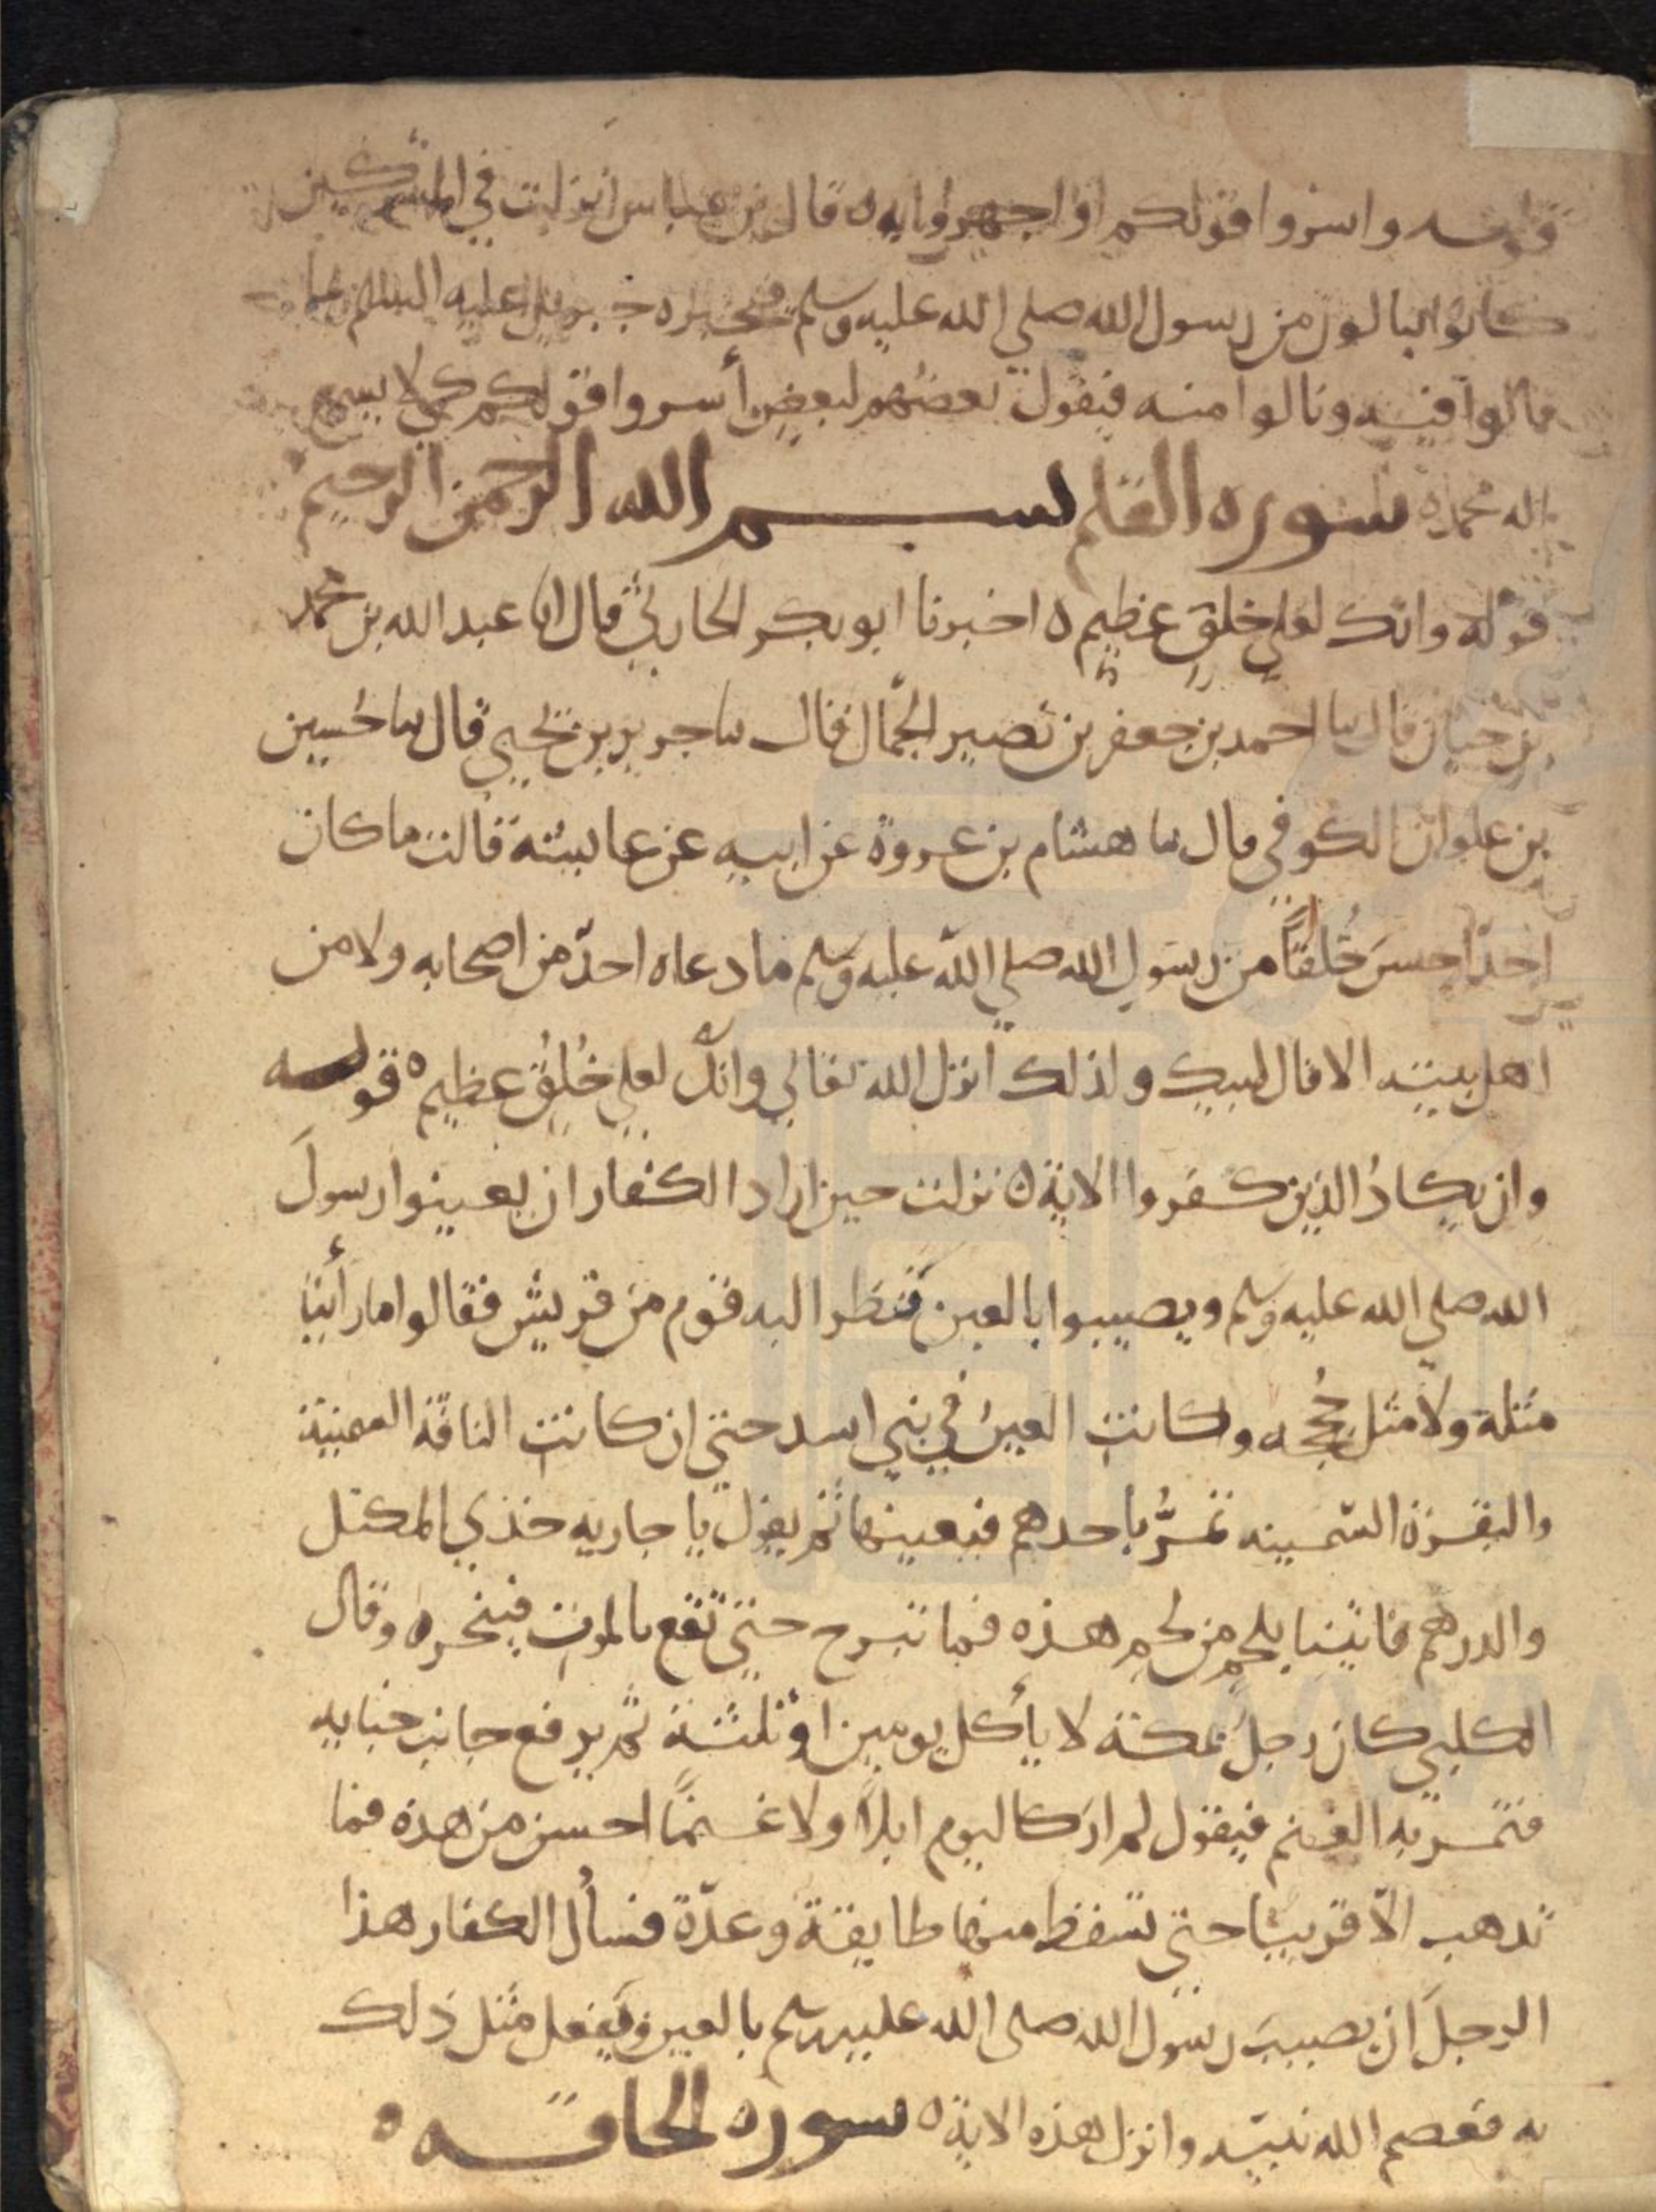 قوله واسروا قولكم او اجهروا به ه قال بن عباس نزلت في المشركين
كانوا ينالون من رسول الله صلي الله عليه وسلم فخبره جبريل عليه السلم بما
قالوا فيه ونالوا منه فيقول بعضهم لبعض أسروا قولكم كي لا يسمع
اله محمد ه سوره القلم بسم الله الرحمن الرحيم
قوله وانك لعلي خلق عظيم ه اخبرنا ابو بكر الحارثي قال انا عبد الله بن محمد
بن حيان قال ثنا احمد بن جعفر بن نصير الجمّال قال ثنا جرير بن يحيي قال ثنا حُسين
بن علوان الكوفي قال ثنا هشام بن عروة عن ابيه عن عايشة قالت ما كان
احدٌ احسنَ خُلقًا من رسول الله صلي الله عليه وسلم ما دعاه احدٌ من اصحابه ولا من
اهل بيته الا قال لبيك ولذلك انزل الله تعالي وانك لعلي خُلُقٍ عظيم ه قوله
وان يكادُ الذين كفروا الاية ه نزلت حين اراد الكفار ان يعينوا رسولَ
الله صلي الله عليه وسلم ويصيبوا بالعين فنظر اليه قوم من قريش فقالوا ما رأينا
مثله ولا مثل حُججه وكانت العينُ في بني اسد حتي ان كانت الناقة السمينة
والبقرة السّمينه تمرُّ باحدهم فيعينها ثم يقول يا جاريه خذي المكتل
والدرهم فاتينا بلحمٍ من لحم هذه فما تبرح حتي تقع بالموت فينحر ه وقال
الكلبي كان رجلٌ بمكة لا يأكل يومين او ثلثة ثم يرفع جانب خبايه
فتمر به الغنم فيقول لم ار كاليوم ابلاً ولا غنمًا احسن من هذه فما
تذهب الّا قريبًا حتي تسقط منها طايفة وعدّة فسأل الكفار هذا
الرجلَ ان يصيبَ رسول الله صلي الله عليه وسلم بالعين ويفعل مثل ذلك
به فعصم الله نبيّه وانزل هذه الاية ه سوره الحاقه ه